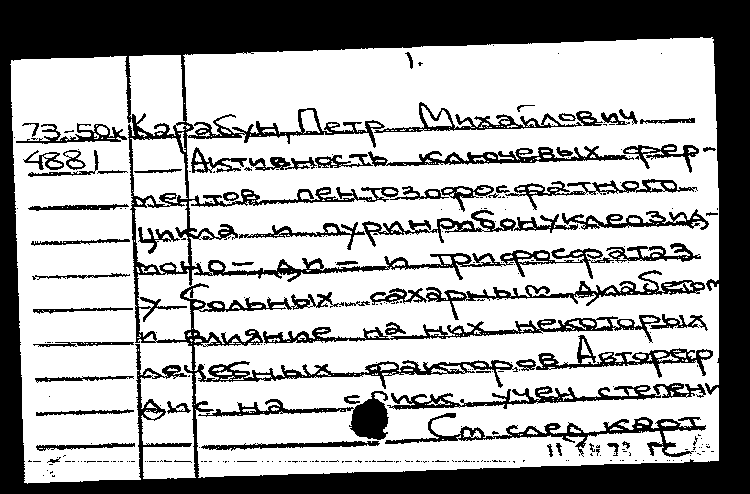 1.
73-50к Карабун, Петр Михайлович.
4881 Активность ключевых фер-
ментов пентозофосфатного
цикла и пуринрибонуклеозид-
моно-, ди- и трифосфатаз
у больных сахарным диабетом
и влияние на них некоторых
лечебных факторов. Автореф.
дис. на соиск. учен. степени
См. след. карт.